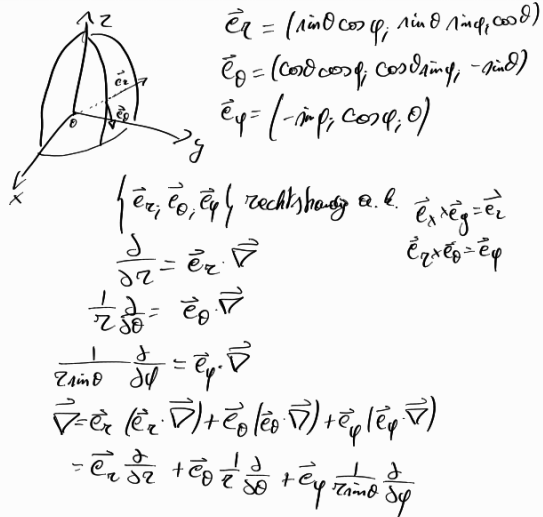 z
e⃗_r = (sinθ cosφ, sinθ sinφ, cosθ)
e⃗_θ = (cosθ cosφ, cosθ sinφ, -sinθ)
e⃗_φ = (-sinφ, cosφ, 0)
e⃗_r
e⃗_θ
θ
y
x
{e⃗_r, e⃗_θ, e⃗_φ} rechtshändig d.h. e⃗_x × e⃗_y = e⃗_z
e⃗_r × e⃗_θ = e⃗_φ
∂/∂r = e⃗_r · ∇⃗
1/r ∂/∂θ = e⃗_θ · ∇⃗
1/(r sinθ) ∂/∂φ = e⃗_φ · ∇⃗
∇⃗ = e⃗_r (e⃗_r · ∇⃗) + e⃗_θ (e⃗_θ · ∇⃗) + e⃗_φ (e⃗_φ · ∇⃗)
= e⃗_r ∂/∂r + e⃗_θ 1/r ∂/∂θ + e⃗_φ 1/(r sinθ) ∂/∂φ